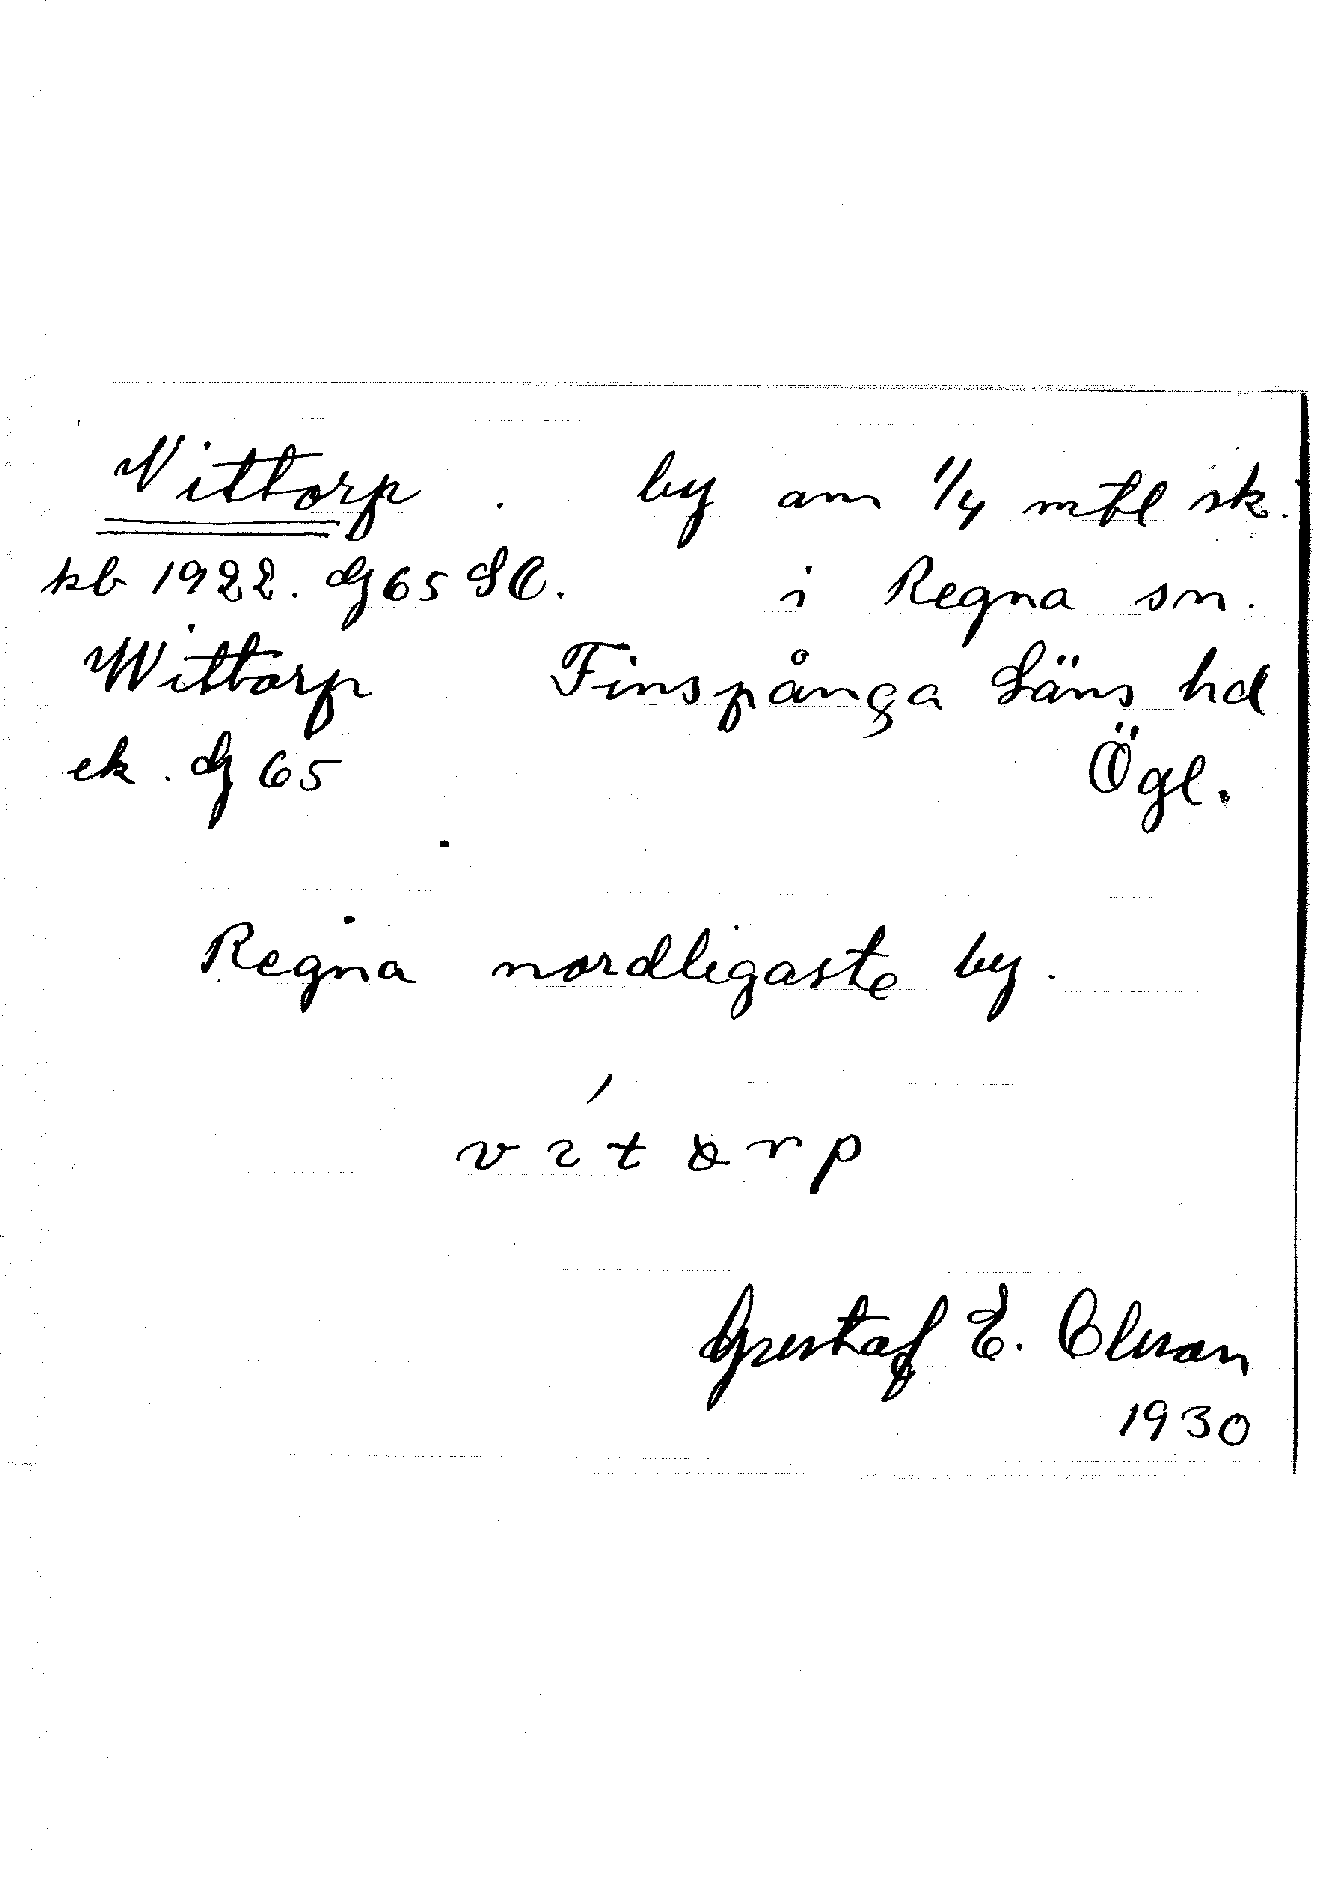 Vittorp . by om 1/4 mtl sk.
kb 1922. dg 65 SO. i Regna sn.
Wittorp Finspånga Läns hd
ek. dg 65 Ögl.
Regna nordligaste by.
Gustaf E. Olsson
1930